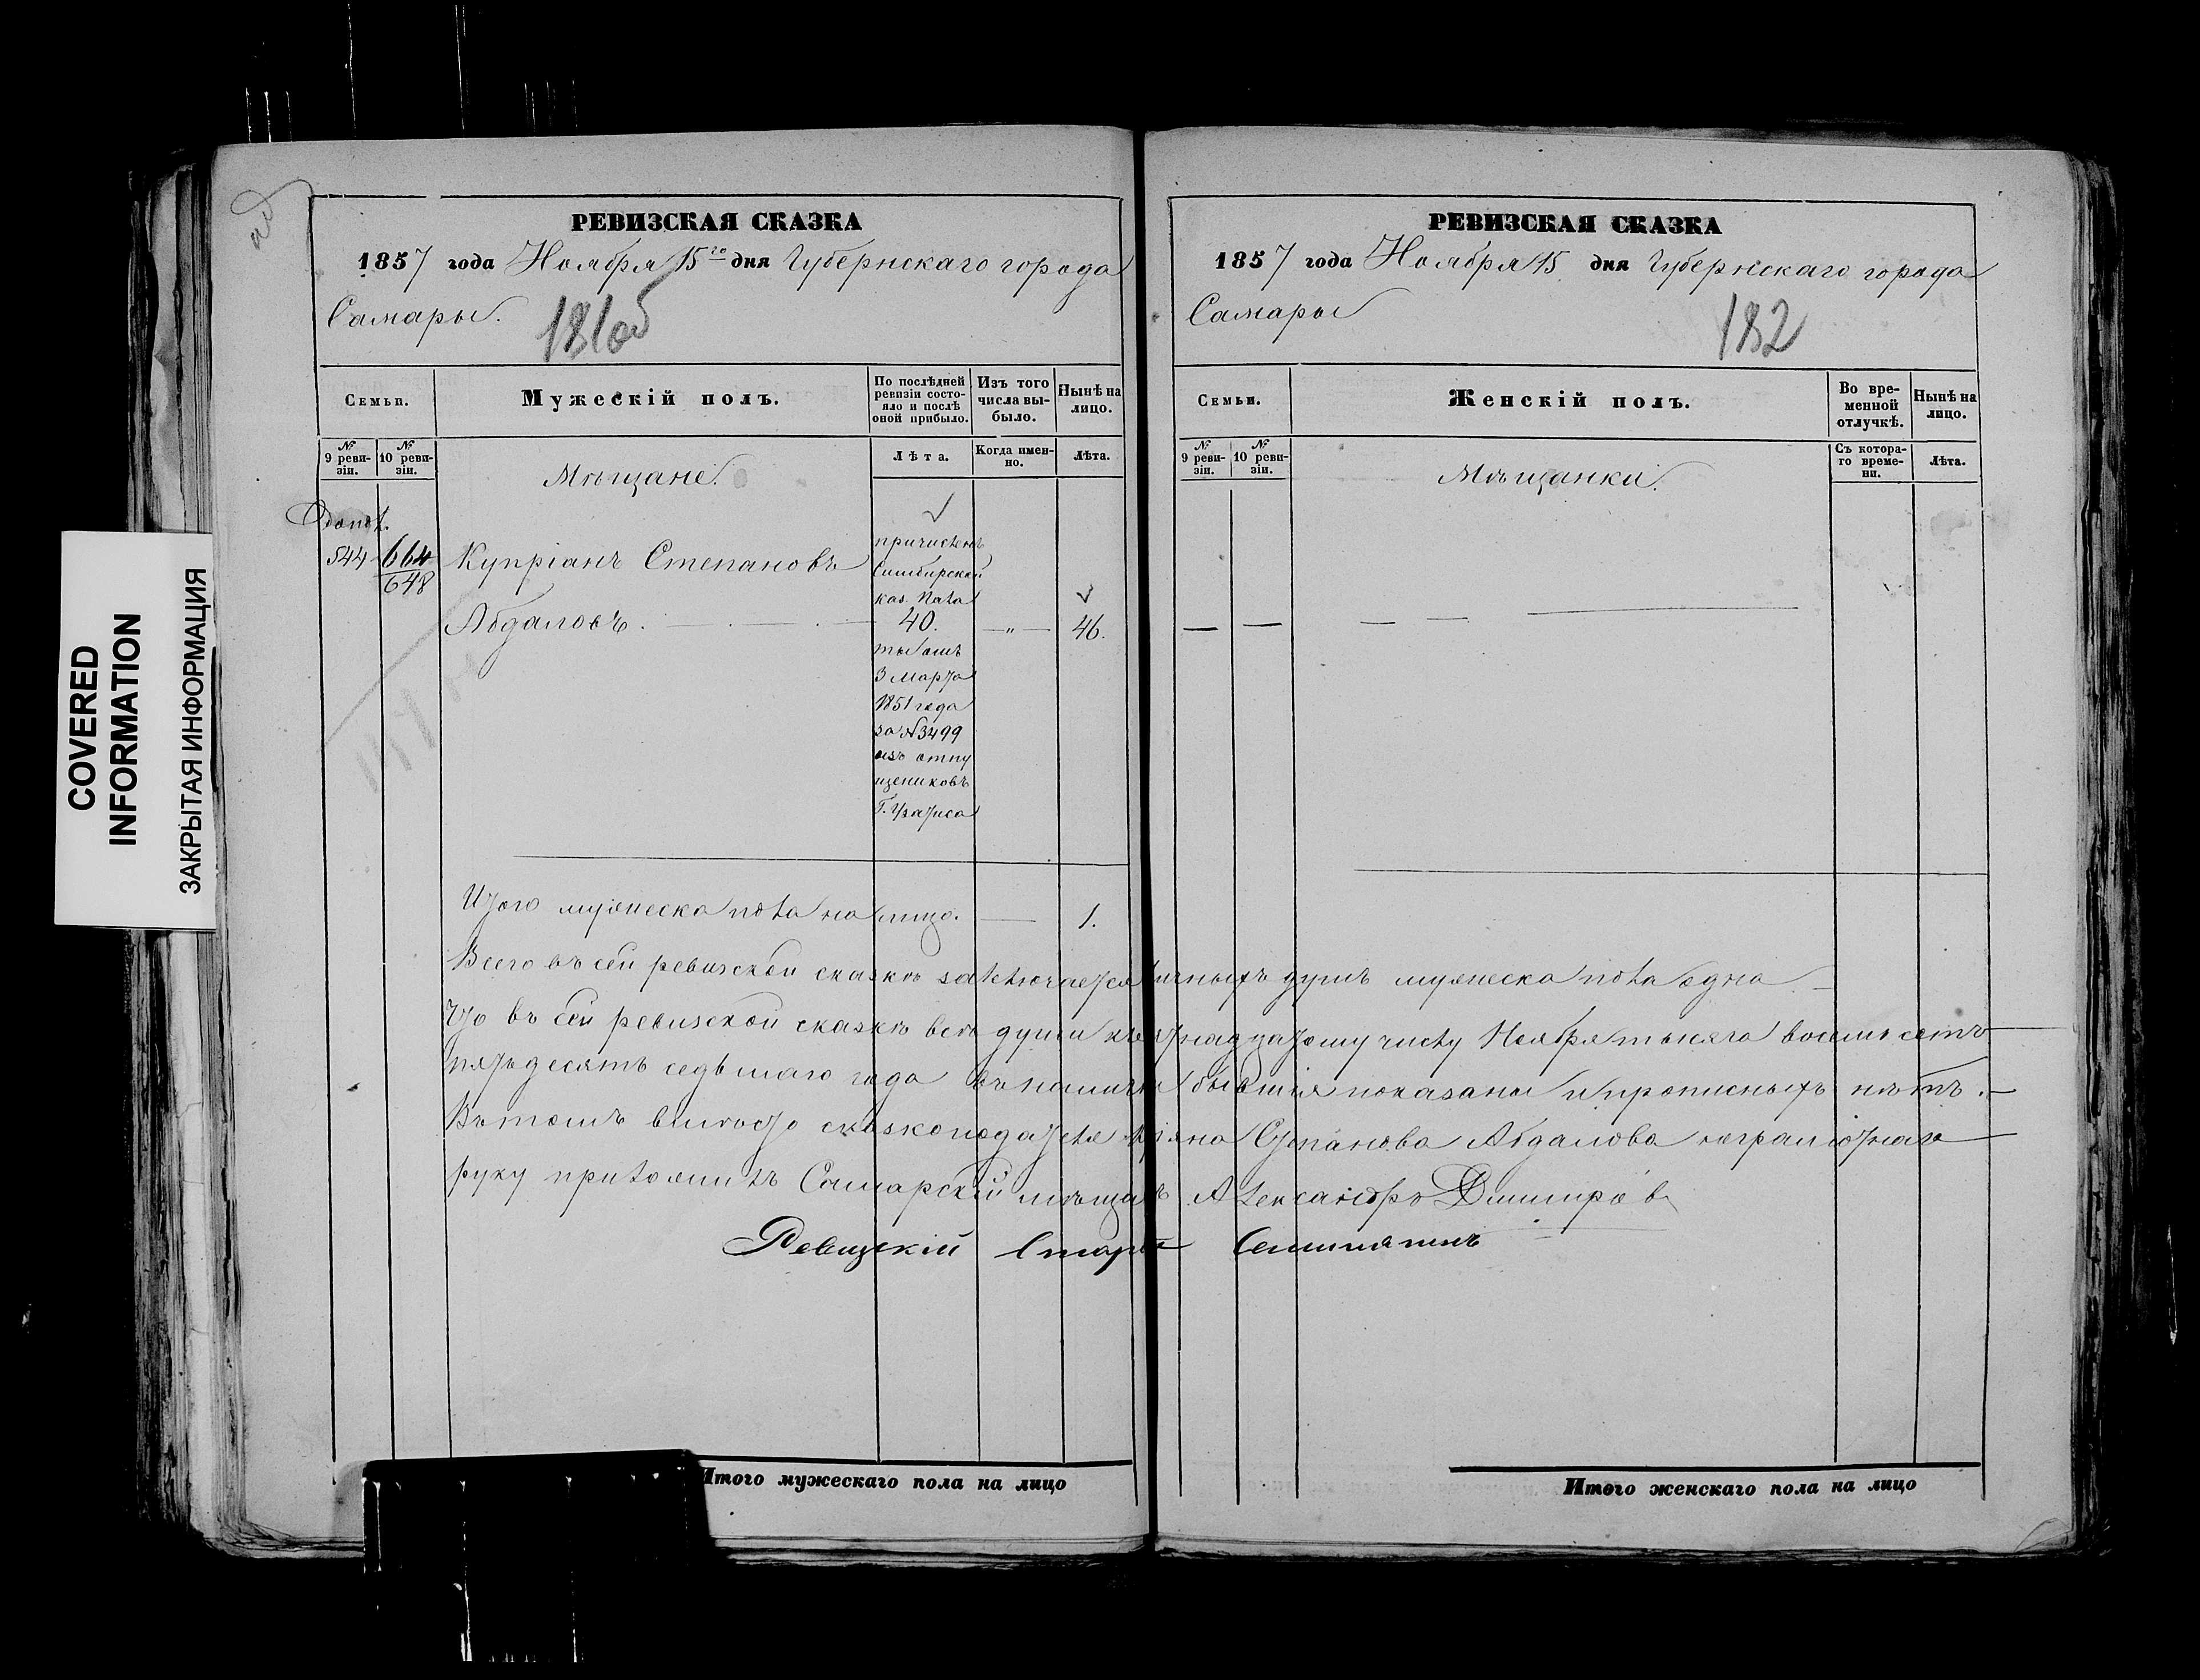 COVERED
INFORMATION
ЗАКРЫТАЯ ИНФОРМАЦИЯ
РЕВИЗСКАЯ СКАЗКА
1857 года Ноября 15го дня Губернскаго города
Самары.
181об
Семьи.
Мужескій полъ.
По послѣдней ревизіи состояло и послѣ оной прибыло.
Изъ того числа выбыло.
Нынѣ на лицо.
№ 9 ревизіи.
№ 10 ревизіи.
Мѣщане.
Лѣта.
Когда именно.
Лѣта.
Допол.
544
664
648
Купріанъ Степановъ
Абдаловъ.
причисленъ
Симбирской
каз. Пала
40.
—„—
46.
тою
3 Марта
1851 года
за №3499
изъ отпу
щениковъ
Итого мужеска пола на лицо. — 1.
Всего въ сей ревизской сказкѣ заключается
Что въ сей ревизской сказкѣ всѣ души къ
пятьдесятъ седьмаго года въ наличіи
Въ томъ вмѣсто сказкоподателя
руку приложилъ Самарскій мѣщан
Ревизскій
Итого мужескаго пола на лицо
РЕВИЗСКАЯ СКАЗКА
1857 года Ноября 15 дня Губернскаго города
Самары
182
Семьи.
Женскій полъ.
Во временной отлучкѣ.
Нынѣ на лицо.
№ 9 ревизіи.
№ 10 ревизіи.
Мѣщанки.
Съ котораго времени.
Лѣта.
душъ мужеска пола одна
числу Ноября тысяча восемь сотъ
бывшія показаны и прописныхъ нѣтъ.
Степанова Абдалова
Александръ
Итого женскаго пола на лицо